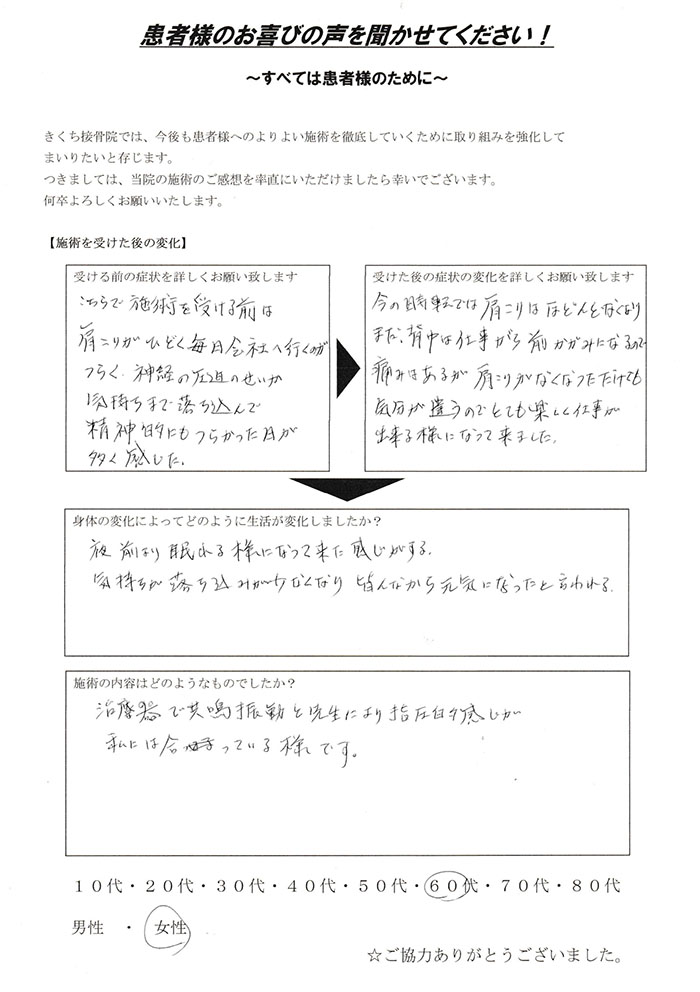 患者様のお喜びの声を聞かせてください！
～すべては患者様のために～
きくち接骨院では、今後も患者様へのよりよい施術を徹底していくために取り組みを強化して
まいりたいと存じます。
つきましては、当院の施術のご感想を率直にいただけましたら幸いでございます。
何卒よろしくお願いいたします。
【施術を受けた後の変化】
受ける前の症状を詳しくお願い致します
こちらで施術を受ける前は
肩こりがひどく毎日会社へ行くのが
つらく、神経の圧迫のせいか
気持ちまで落ち込んで
精神的にもつらかった日が
多く感じた。
受けた後の症状の変化を詳しくお願い致します
今の時点では肩こりはほとんどなくなり
また、背中は仕事がら前かがみになるので
痛みはあるが肩こりがなくなっただけでも
気分が違うのでとても楽しく仕事が
出来る様になって来ました。
身体の変化によってどのように生活が変化しましたか？
夜前より眠れる様になって来た感じがする。
気持ちが落ち込みが少なくなり皆んなから元気になったと言われる。
施術の内容はどのようなものでしたか？
治療器で共鳴振動と先生により指圧的感じが
私には合っている様です。
１０代・２０代・３０代・４０代・５０代・６０代・７０代・８０代
男性　・　女性
☆ご協力ありがとうございました。